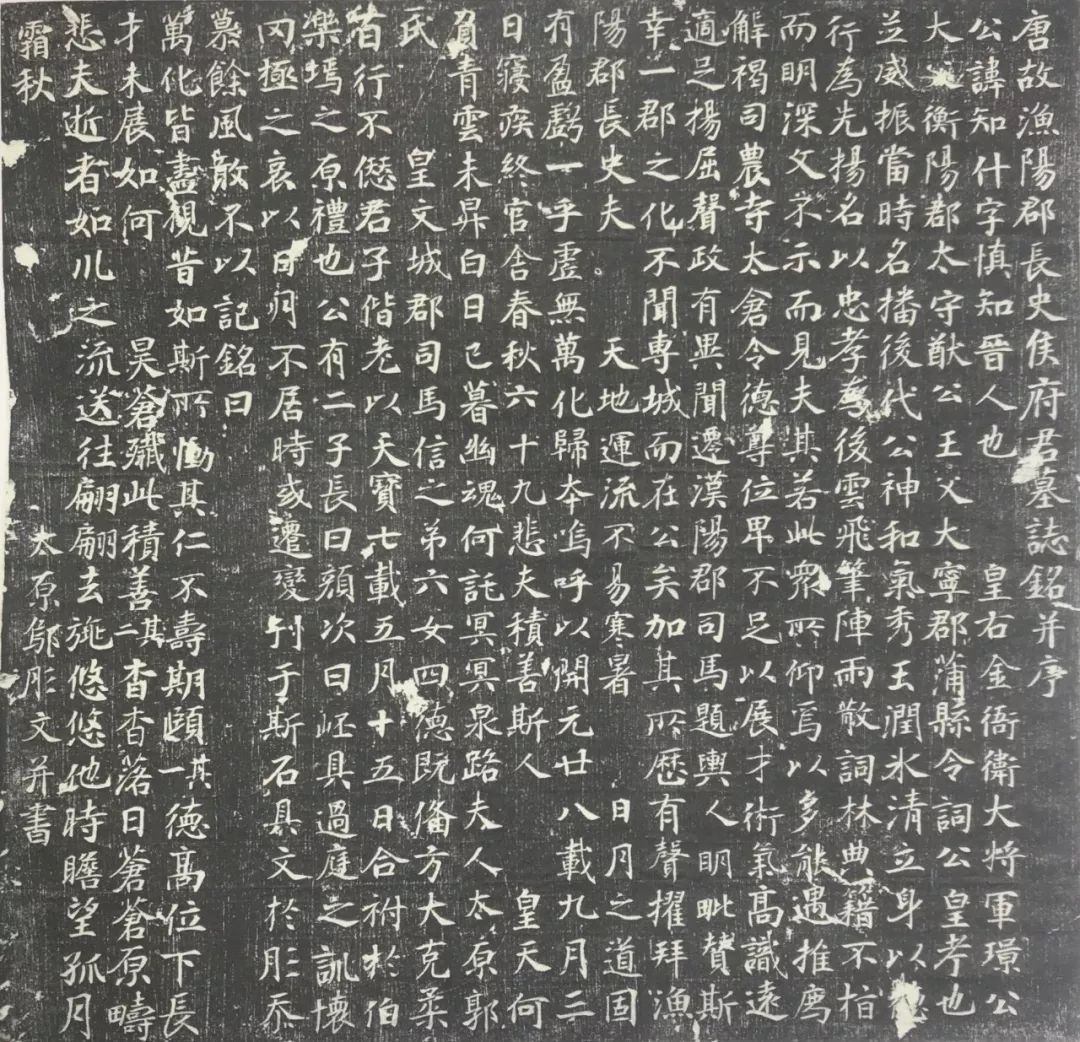 唐故漁陽郡長史侯府君墓誌銘并序
公諱知什字慎知晉人也 皇右金吾衛大將軍璟公
大父衡陽郡太守猷公王父大寧郡蒲縣令詞公皇考也
並威振當時名播後代公神和氣秀玉潤氷清立身以德
行為先揚名以忠孝為後雲飛筆陣雨散詞林典籍不指
而明深文不示而見夫其若此眾所仰焉以多能遇推薦
解褐司農寺太倉令德尊位卑不足以展才術氣高識遠
適足揚屈聲政有異聞遷漢陽郡司馬題輿人明毗贊斯
幸一郡之化不聞專城而在公矣加其所歷有聲擢拜漁
陽郡長史夫 天地運流不易寒暑 日月之道固
有盈虧一乎虛無萬化歸本嗚呼以開元廿八載九月三
日寢疾終官舍春秋六十九悲夫積善斯人 皇天何
負青雲未昇白日已暮幽魂何託冥冥泉路夫人太原郭
氏 皇文城郡司馬信之弟六女四德既俻方大克柔
苔行不僽君子偕老以天寶七載五月十五日合祔於伯
樂塢之原禮也公有二子長曰顏次曰岯具過庭之訓懷
罔極之哀以日月不居時或遷變刊于斯石具文於肜忝
慕餘風敢不以記銘曰
萬化皆盡視昔如斯所慟其仁不壽期頤其一德高位下長
才未展如何 昊蒼殲此積善其二杳杳落日蒼蒼原疇
悲夫逝者如川之流送往翩翩去旐悠悠他時瞻望孤月
霜秋 太原鄔肜文并書